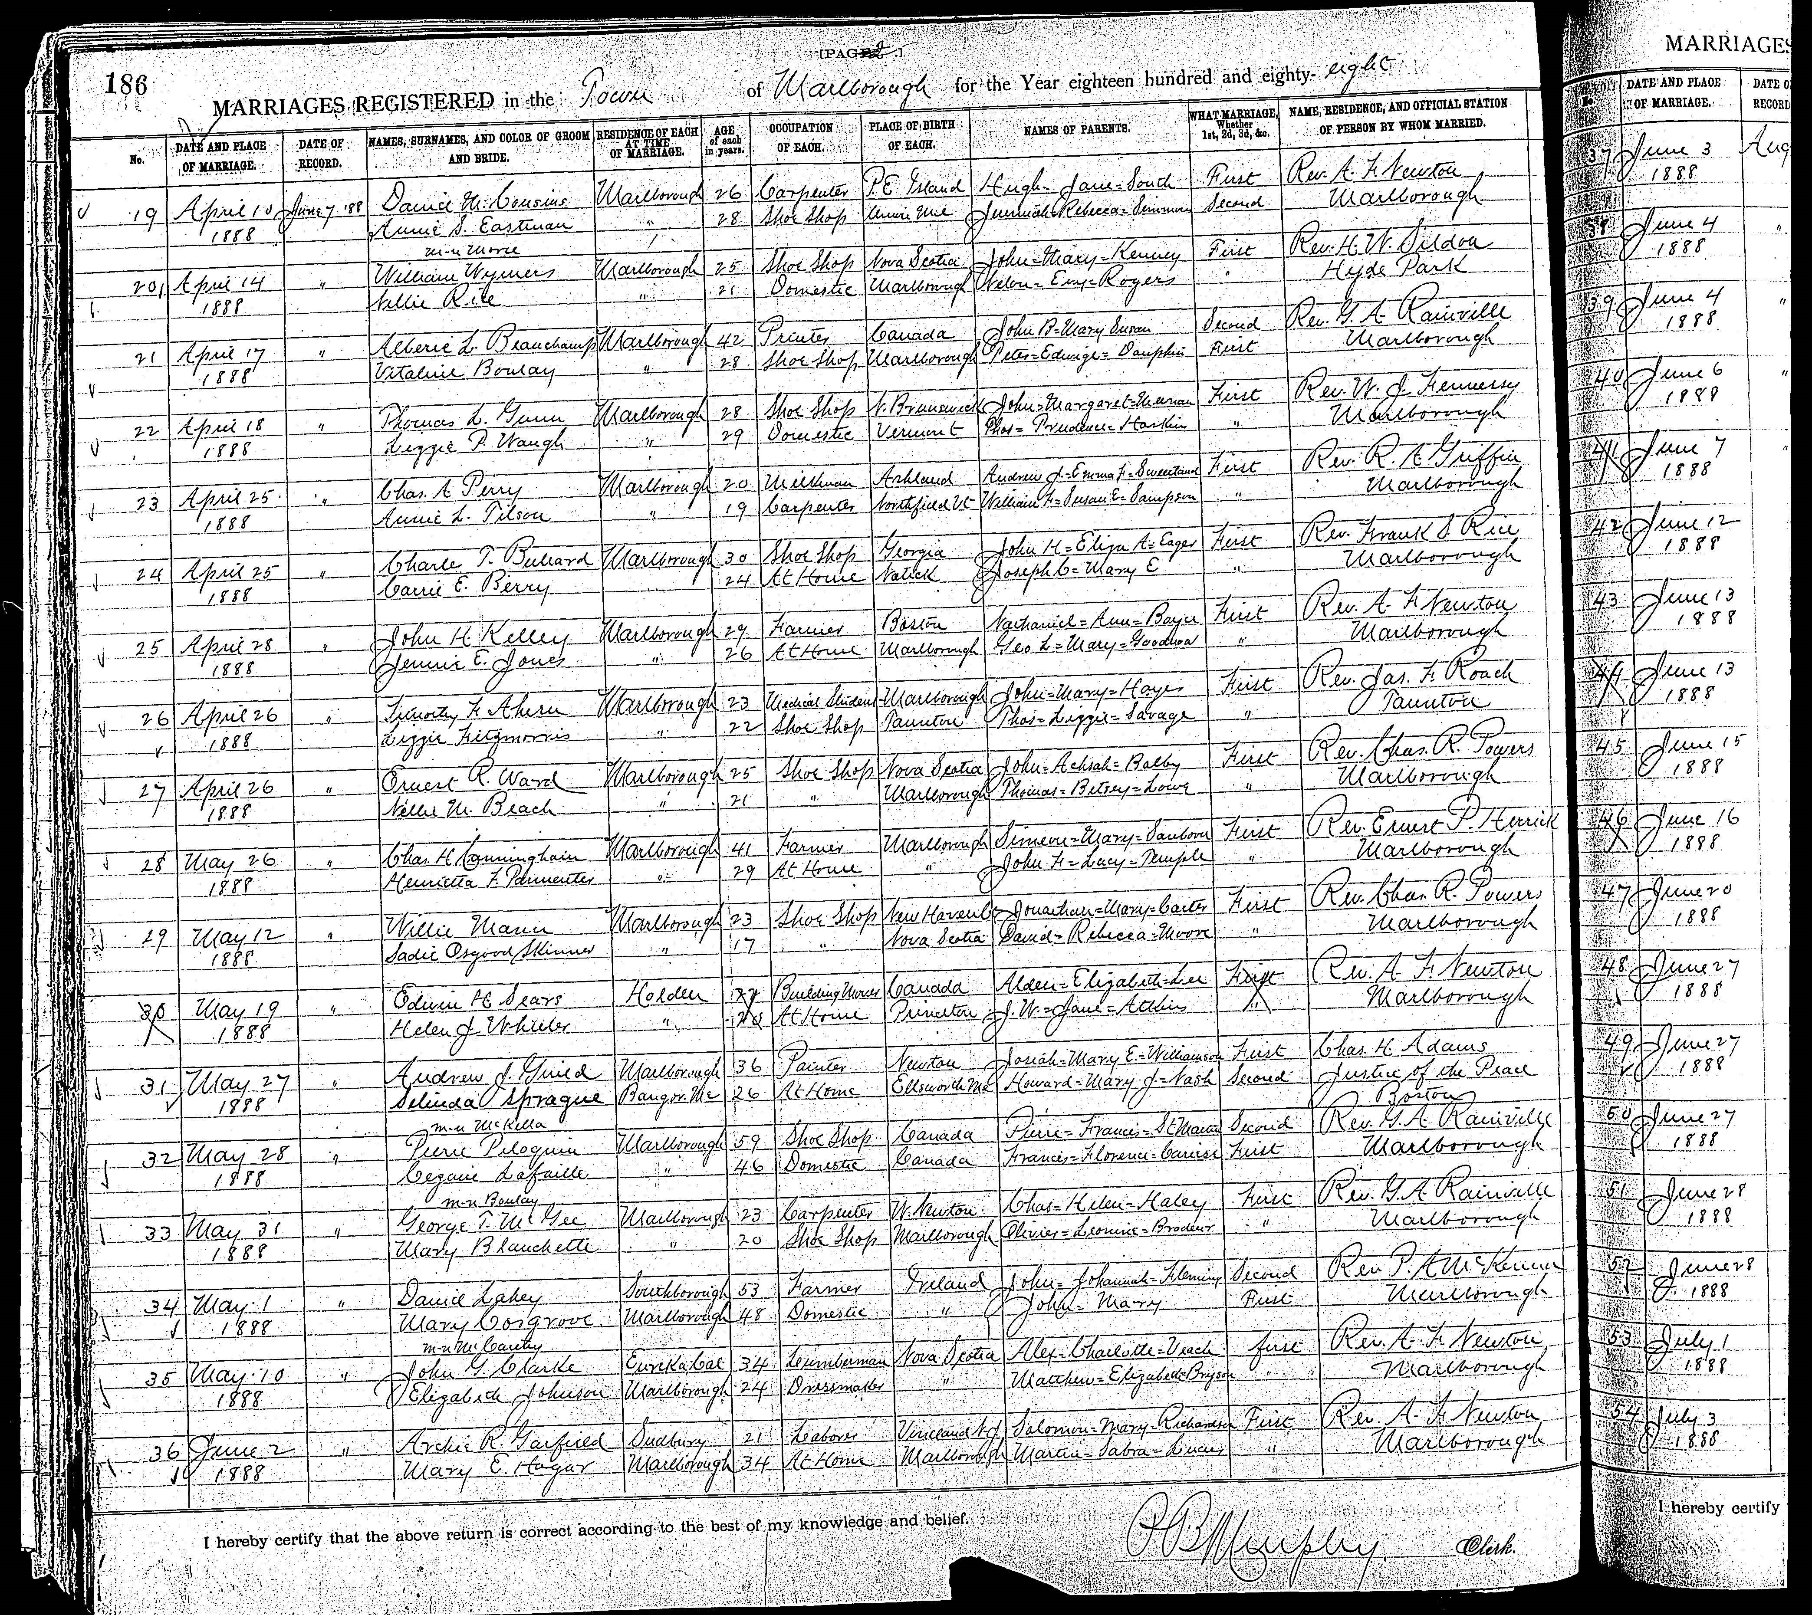 186
[PAGE 2]
MARRIAGES REGISTERED in the Town of Marlborough for the Year eighteen hundred and eighty-eight
No. DATE AND PLACE OF MARRIAGE. DATE OF RECORD. NAMES, SURNAMES, AND COLOR OF GROOM AND BRIDE. RESIDENCE OF EACH AT TIME OF MARRIAGE. AGE of each in years. OCCUPATION OF EACH. PLACE OF BIRTH OF EACH. NAMES OF PARENTS. WHAT MARRIAGE, Whether 1st, 2d, 3d, &c. NAME, RESIDENCE, AND OFFICIAL STATION OF PERSON BY WHOM MARRIED.
19 April 10 June 7 '88 Daniel M. Cousins Marlborough 26 Carpenter P.E. Island Hugh = Jane = South First Rev. A. F. Newton
1888 Annie S. Eastman " 28 Shoe Shop Second Marlborough
m-n Morse
20 April 14 " William Wymers Marlborough 25 Shoe Shop Nova Scotia John = Mary = Kenney First Rev. H. W.
1888 Nellie Rice " 21 Domestic Marlborough = Rogers " Hyde Park
21 April 17 " Alberic L. Beauchamp Marlborough 42 Printer Canada John B = Mary Susan Second Rev. G. A. Rainville
1888 Vitaline Boulay " 28 Shoe Shop Marlborough Peter = Edwige = Dauphin First Marlborough
22 April 18 " Thomas L. Gunn Marlborough 28 Shoe Shop N. Brunswick John = Margaret = First Rev. W. J. Fennessy
1888 Lizzie P. Waugh " 29 Domestic Vermont Thos = Prudence = Harkins " Marlborough
23 April 25 " Chas. A. Perry Marlborough 20 Milkman Ashland Andrew J = Emma F = Sweetland First Rev. R. A. Griffin
1888 Annie L. Tilson " 19 Carpenter Northfield Vt William F = Susan E = Sampson " Marlborough
24 April 25 " Charle T. Bullard Marlborough 30 Shoe Shop Georgia John H = Eliza A = Eager First Rev. Frank S Rice
1888 Carrie E. Berry " 24 At Home Natick Joseph C = Mary E " Marlborough
25 April 28 " John H. Kelley Marlborough 29 Farmer Boston Nathaniel = Ann = First Rev. A. F. Newton
1888 Jennie E. Jones " 26 At Home Marlborough Geo L = Mary = Goodnow " Marlborough
26 April 26 " Timothy F. Ahern Marlborough 23 Medical Student Marlborough John = Mary = Hayes First Rev. Jas. F. Roach
1888 Lizzie Fitzmorris " 22 Shoe Shop Taunton Thos = Lizzie = Savage " Taunton
27 April 26 " Ernest R. Ward Marlborough 25 Shoe Shop Nova Scotia John = Achsah = Balby First Rev. Chas. R. Powers
1888 Nellie M. Beach " 21 " Marlborough Thomas = Betsey = Lowe " Marlborough
28 May 26 " Chas. H. Cunningham Marlborough 41 Farmer Marlborough Simeon = Mary = Sanborn First Rev. Ernest P. Herrick
1888 Henrietta F. Parmenter " 29 At Home " John F = Lucy = Temple " Marlborough
29 May 12 " Willie Mann Marlborough 23 Shoe Shop New Haven Ct Jonathan = Mary = Carter First Rev. Chas. R. Powers
1888 Sadie Osgood Skinner " 17 " Nova Scotia David = Rebecca = Moore " Marlborough
30 May 19 " Edwin H. Sears Holden Building Mover Canada Alden = Elizabeth = Lee First Rev. A. F. Newton
1888 Helen J. Wheeler " At Home Princeton J. W. = Jane = Atkins " Marlborough
31 May 27 " Andrew J. Guild Marlborough 36 Painter Newton Josiah = Mary E. = Williamson First Chas. H. Adams
1888 Selinda Sprague Bangor Me 26 At Home Ellsworth Me Howard = Mary J = Nash Second Justice of the Peace
m-n McKella Boston
32 May 28 " Pierre Peloquin Marlborough 59 Shoe Shop Canada Pierre = Francis = St Martin Second Rev. G. A. Rainville
1888 Cezarie Lafaille " 46 Domestic Canada Francis = Florence = First Marlborough
m-n Boulay
33 May 31 " George T. McGee Marlborough 23 Carpenter W. Newton Chas = Helen = Haley First Rev. G. A. Rainville
1888 Mary Blanchette " 20 Shoe Shop Marlborough Olivier = Leonine = Brodeur " Marlborough
34 May 1 " Daniel Lahey Southborough 53 Farmer Ireland John = Johannah = Fleming Second Rev. P. A. McKenna
1888 Mary Cosgrove Marlborough 48 Domestic " John = Mary First Marlborough
m-n McCarthy
35 May 10 " John G. Clarke Eureka Cal 34 Lumberman Nova Scotia Alex = Charlotte = Veach first Rev. A. F. Newton
1888 Elizabeth Johnson Marlborough 24 Dressmaker " Matthew = Elizabeth = Bryson " Marlborough
36 June 2 " Archie R. Garfield Sudbury 21 Laborer Vineland N.J. Solomon = Mary = Richardson First Rev. A. F. Newton
1888 Mary E. Hagar Marlborough 34 At Home Marlborough Martin = Sabra = " Marlborough
I hereby certify that the above return is correct according to the best of my knowledge and belief.
P B Murphy Clerk.
MARRIAGES
No. DATE AND PLACE OF MARRIAGE. DATE O RECORD
37 June 3 Aug
1888
38 June 4 "
1888
39 June 4 "
1888
40 June 6 "
1888
41 June 7 "
1888
42 June 12
1888
43 June 13
1888
44 June 13
1888
45 June 15
1888
46 June 16
1888
47 June 20
1888
48 June 27
1888
49 June 27
1888
50 June 27
1888
51 June 28
1888
52 June 28
1888
53 July 1
1888
54 July 3
1888
I hereby certify